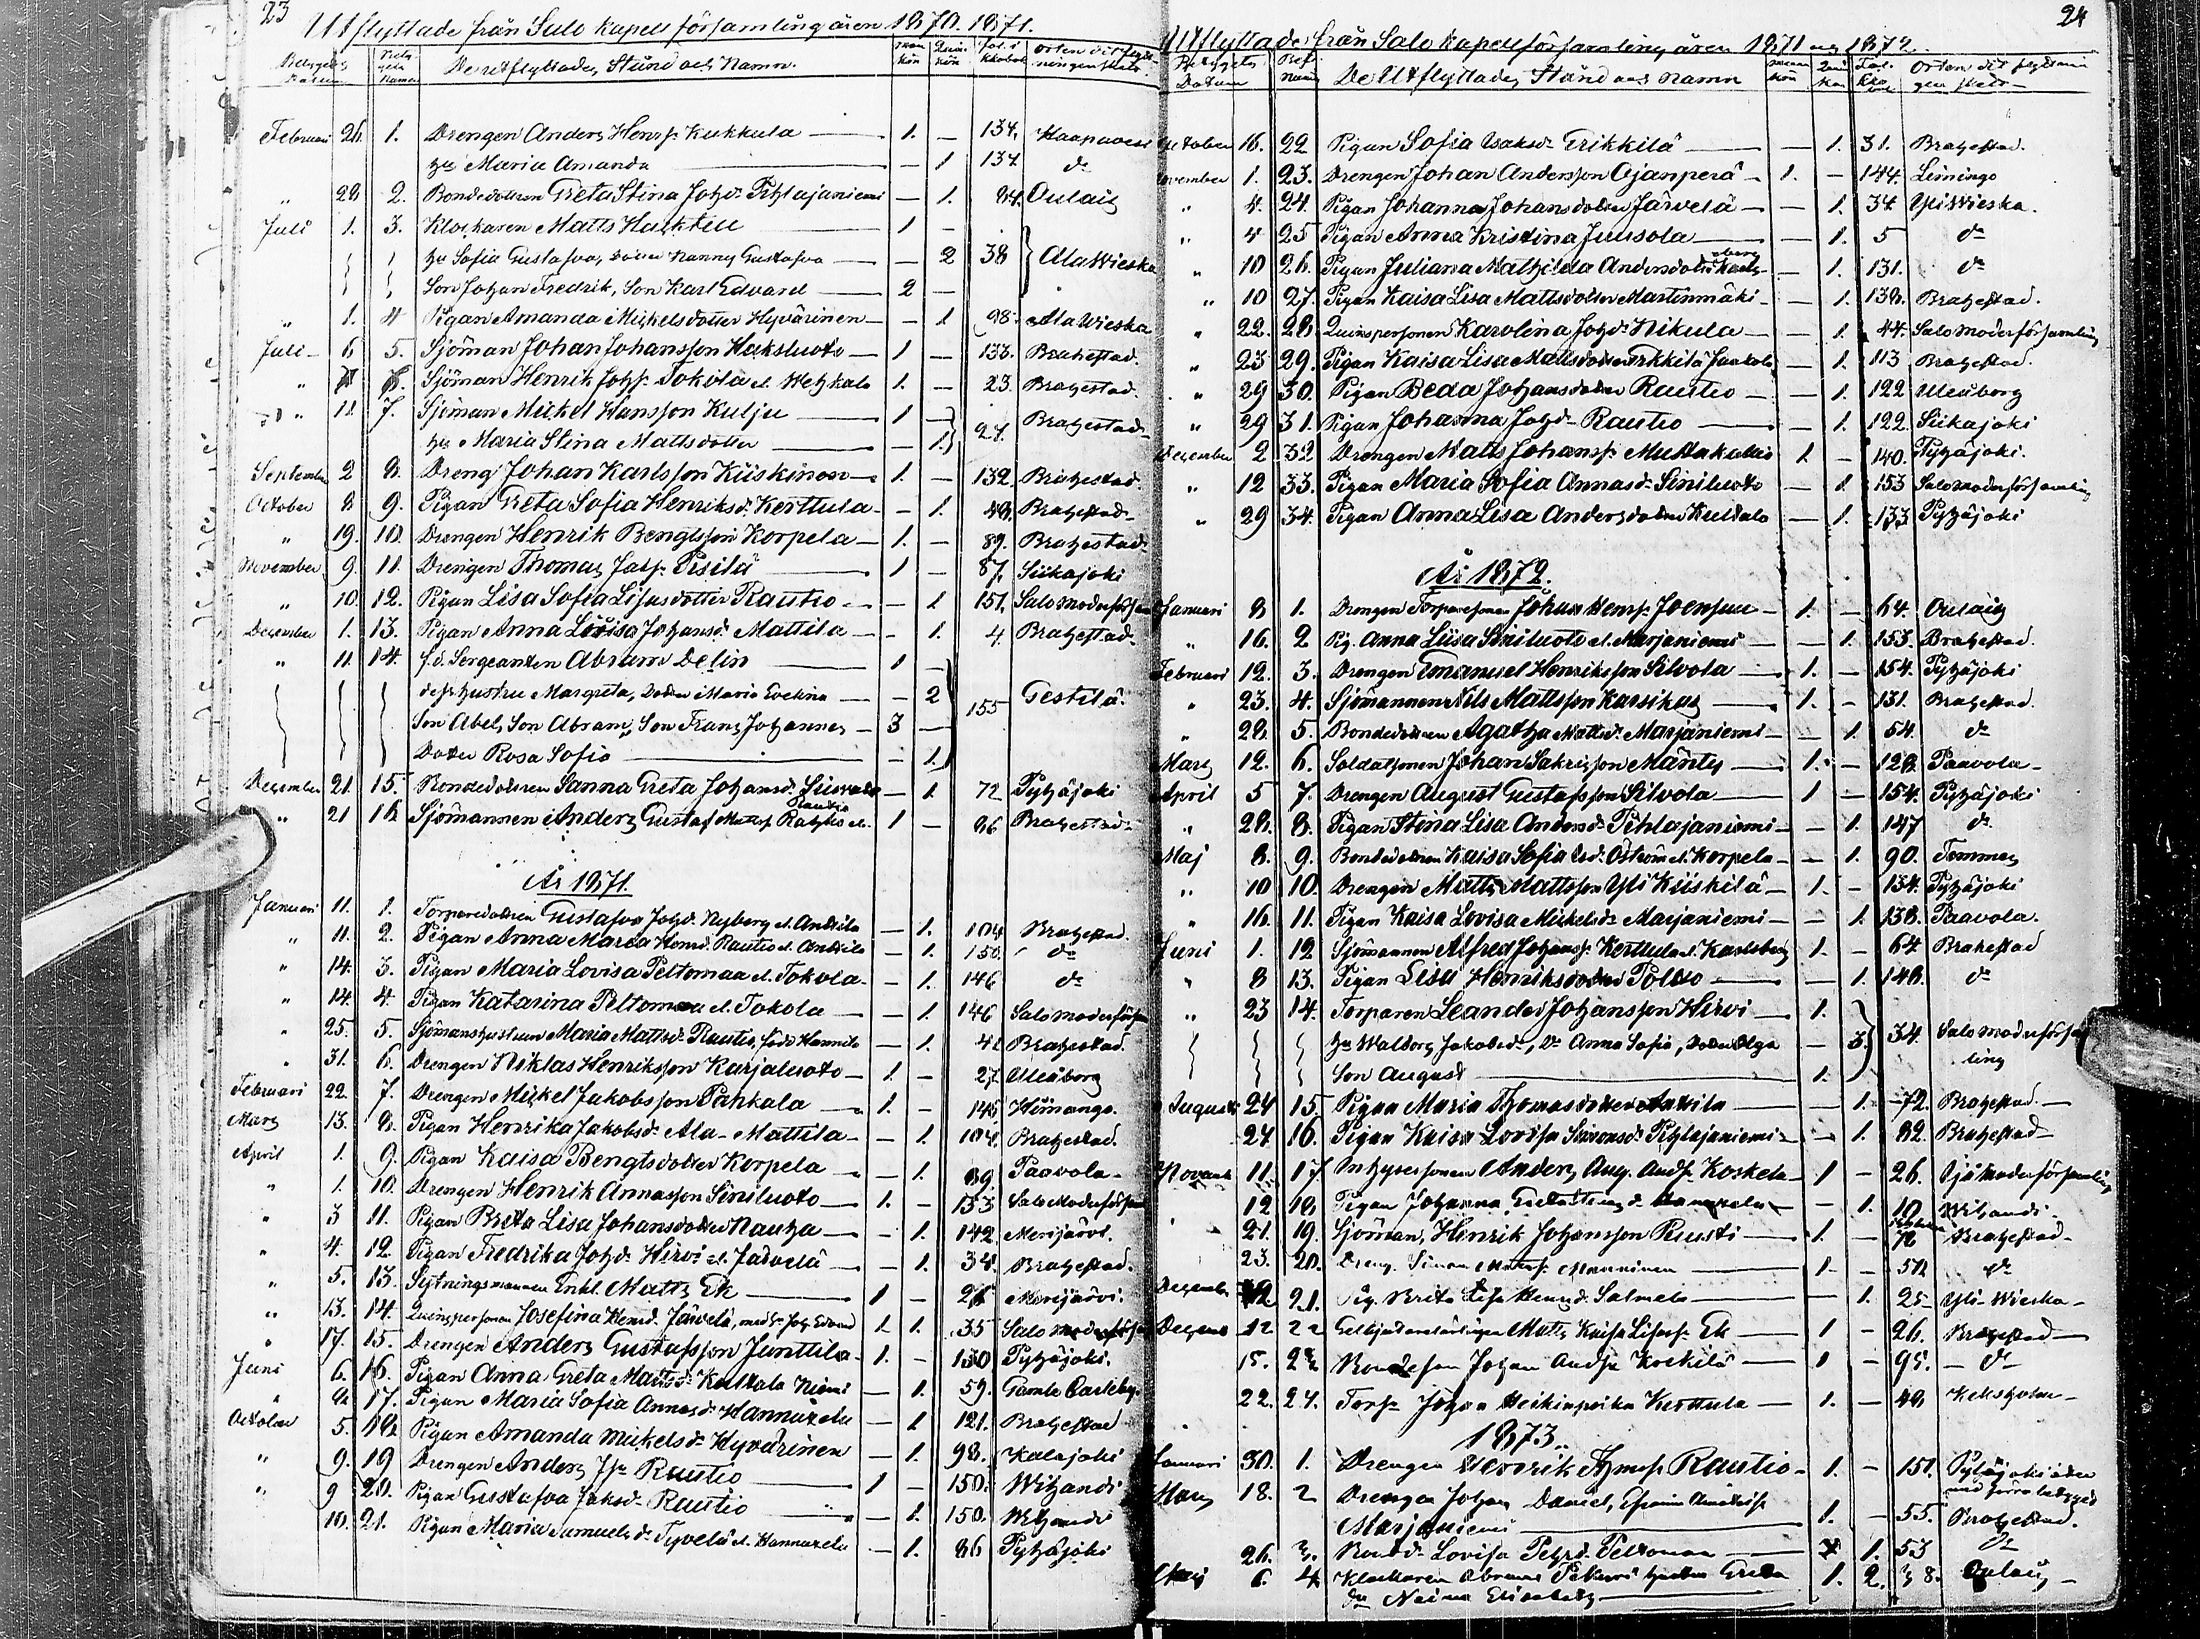 23
Utflyttade från Salo kapell församling åren 1870. 1871.
De utflyttades, Stånd och Namn.
Februari 26. 1. Drengen Anders Henrss. Kukkula — 1. — 134. Haapavesi
hu Maria Amanda — — 1 134 do
" 28 2. Bondedottren Greta Stina Johd. Pihlajaniemi — 1. 84. Oulais
Juli 1. 3. Klockaren Matts Huikteu — 1 —
hu Sofia Gustafva, dotter Nanny Gustafva — — 2 38 Alawieska
Son Johan Fredrik, Son Karl Edvard — 2 —
" 1. 4 Pigan Amanda Mickelsdotter Hyvärinen — — 1 98. Alawieska
Juli — 6 5. Sjöman Johan Johansson Haksluoto — 1 — 133. Brahestad.
" Sjöman Henrik Johss. Tokola el. Wehkala 1. — 23. Brahestad.
" 11. 7. Sjöman Mickel Hansson Kulju — 1 — 27. Brahestad
hu Maria Stina Mattsdotter — — 1.
September 2 8. Dreng Johan Karlsson Kiiskinen — 1. — 132. Brahestad
October 8 9. Pigan Greta Sofia Henriksd. Kerttula — — 1. 48. Brahestad
" 19. 10. Drengen Henrik Bengtsson Korpela — 1. — 89. Brahestad
November 9. 11. Drengen Thomas Jacss. Pisilä — 1 — 87. Siikajoki
" 10. 12. Pigan Lisa Sofia Lisasdotter Rautio — — 1 151. Salo moderförs
December 1. 13. Pigan Anna Lovisa Johansd. Mattila — — 1. 4. Brahestad
" 11. 14. f.d. Sergeanten Abram Delin — 1 —
dess hustru Margreta, dotter Maria Evelina — 2 155 Gestilä.
Son Abel, Son Abram, Son Frans Johannes — 3 —
Dotter Rosa Sofia — — 1.
December 21. 15. Bondedottren Sanna Greta Johansd. — 1. 72 Pyhäjoki
" 21 16 Sjömannen Anders Gustaf Mattss. Rautio — 1 — 86 Brahestad
År 1871.
Januari 11. 1. Torparedottren Gustafva Johd. Nyberg el. Anttila — 1. 104 Brahestad.
" 11. 2. Pigan Anna Maria Henrd. Rautio el. Anttila — 1. 150. do
" 14. 3. Pigan Maria Lovisa Peltomaa el. Tokola — 1. 146 do
" 14. 4. Pigan Katarina Peltomaa el. Tokola — 1. 146 Salo moderförs
" 25. 5. Sjömanshustrun Maria Mattsd. Rautio, född Hannila — 1. 41 Brahestad.
" 31. 6. Drengen Niklas Henriksson Karjaluoto — 1. — 27 Uleåborg
Februari 22. 7. Drengen Mickel Jakobsson Pahkala — 1. — 145 Himango.
Mars 13. 8. Pigan Henrika Jakobsd. Ala-Mattila — 1. 104. Brahestad.
April 1. 9. Pigan Kaisa Bengtsdotter Korpela — 1. 89. Paavola
" 1. 10. Drengen Henrik Annasson Siniluoto — 1. — 153 Salo Moderförs
" 3 11. Pigan Brita Lisa Johansdotter Nauha — — 1. 142. Merijärvi.
" 4. 12. Pigan Fredrika Johd. Hirvi el. Järvelä — 1. 34. Brahestad.
" 5. 13. Sytningsmannen Enkl. Matts Ek — 1 — 26 Merijärvi.
" 13. 14. Qvinspersonen Josefina Henrd. Järvelä, med Sn Joh. Edvard 1 1. 35 Salo moderförs
" 17. 15. Drengen Anders Gustafsson Junttila — 1. — 130 Pyhäjoki.
Juni 6. 16. Pigan Anna Greta Mattsd. Kultala Niemi — 1. 59. Gamla Carleby.
" 17. Pigan Maria Sofia Annasd. Hannuxela — 1 121. Brahestad
October 5. 18. Pigan Amanda Mickelsd. Hyvärinen — 1. 98. Kalajoki
" 9. 19 Drengen Anders Rautio — 1 — 150. Wihandi
" 9 20. Pigan Gustafva Jaksd. Rautio — 1. 150. Wihandi
10. 21. Pigan Maria Samuelsd. Tyvelä el. Hannuxela — 1. 86 Pyhäjoki
24
Utflyttade från Salo kapellförsamling åren 1871 och 1872.
Betygets Datum De Utflyttades, Stånd och namn
October 16. 22 Pigan Sofia Isaksd. Erikkilä — — 1. 31. Brahestad.
November 1. 23. Drengen Johan Andersson Ojanperä — 1. — 144. Limingo
" 4. 24. Pigan Johanna Johansdotter Järvelä — — 1. 34 Yliwieska.
" 4 25 Pigan Anna Kristina Juusola — — 1. 5 do
" 10 26. Pigan Juliana Mathilda Andersdotter — 1. 131. do
" 10 27. Pigan Kaisa Lisa Mattsdotter Martinmäki — — 1. 138. Brahestad.
" 22. 28. Qvinspersonen Karolina Johd. Nikula — — 1. 44. Salo moderförsamling
" 23 29. Pigan Kaisa Lisa Mattsdotter Erkkilä Jaakola — 1. 113 Brahestad.
" 29 30. Pigan Beda Johansdotter Rautio — — 1. 122 Uleåborg
" 29 31. Pigan Johanna Johd. Rautio — — 1. 122. Siikajoki
December 2 32 Drengen Matts Johanss. Muttakallio 1. — 140. Pyhäjoki.
" 12 33. Pigan Maria Sofia Annasd. Siniluoto — 1. 153 Salo moderförsamling
" 29 34. Pigan Anna Lisa Andersdotter Kultala — 1. 133 Pyhäjoki
År 1872.
Januari 8 1. Drengen Torparesonen Johan Henrss. Joensuu — 1. — 64. Oulais
" 16. 2 Pig. Anna Liisa Siniluoto el. Marjaniemi — 1. 153. Brahestad.
Februari 12. 3. Drengen Emanuel Henriksson Silvola — 1. — 154. Pyhäjoki
" 23. 4. Sjömannen Nils Mattsson Karsikas — 1. — 131. Brahestad.
" 28. 5. Bondedottren Agatha Mattsd. Marjaniemi — 1. 54. do
Mars 12. 6. Soldatsonen Johan Sakrisson Mäntys — 1. — 128. Paavola
April 5 7. Drengen August Gustafsson Silvola — 1 — 154. Pyhäjoki
" 28. 8. Pigan Stina Lisa Andersd. Pihlajaniemi — 1. 147 do
Maj 8. 9. Bondedottren Kaisa Sofia Isd. Öström el. Korpela — 1. 90. Temmes
" 10 10. Drengen Matts Mattsson Yli Kiiskilä — 1. — 134. Pyhäjoki
" 16. 11. Pigan Kaisa Lovisa Mickelsd. Marjaniemi — 1. 138. Paavola.
Juni 1. 12 Sjömannen Alfred Johanss. Kerttula el. Karlsberg 1. — 64 Brahestad
" 8 13. Pigan Lisa Henriksdotter Poldo — 1. 148. do
" 23 14. Torparen Leander Johansson Hirvi — 1.
hu Walborg Jakobsd., Dr Anna Sofia, dotter Olga — 3. 34. Salo moderförsam
Son August — 1. ling
Augusti 24 15. Pigan Maria Thomasdotter Anttila — 1. 72. Brahestad
24. 16. Pigan Kaisa Lovisa Simonsd. Pihlajaniemi — 1. 82. Brahestad
Novemb 11. 17. Inhysesonen Anders Aug. Andss. Koskela — 1 — 26. moderförsamling
12. 18. Pigan Johanna Greta Hannuxela — 1. 10. Wihandi.
21. 19. Sjöman, Henrik Johansson Ruusti — 1. — Brahestad
23. 20. Dreng. Simon Matss. Manninen 1. — 52 do
December 12 21. Pig. Brita Lisa Henrd. Salmela — 1. 25 Yli-Wieska
Decemb 12 22 Matts Kaisa Lisass. Ek — 1 — 26. Brahestad
15. 23 Bondeson Johan Andss. Koskilä — 1 — 95. do
22. 24. Torps. Johan Heikinpoika Kerttula — 1. — 48. Kexholm
1873.
Januari 30. 1. Drengen Henrik Rautio — 1. — 151. Pyhäjoki
Mars 18. 2 Drengen Johan Daniel
Marjaniemi — 1. — 55. Brahestad.
26. 3. Bonded. Lovisa Pehrsd. Peltomaa — 1. 53 do
Maj 6. 4 Klockaren Abram Pekuri hustru Greta 1. 2. 38. Oulais
dr Naima Elisabeth